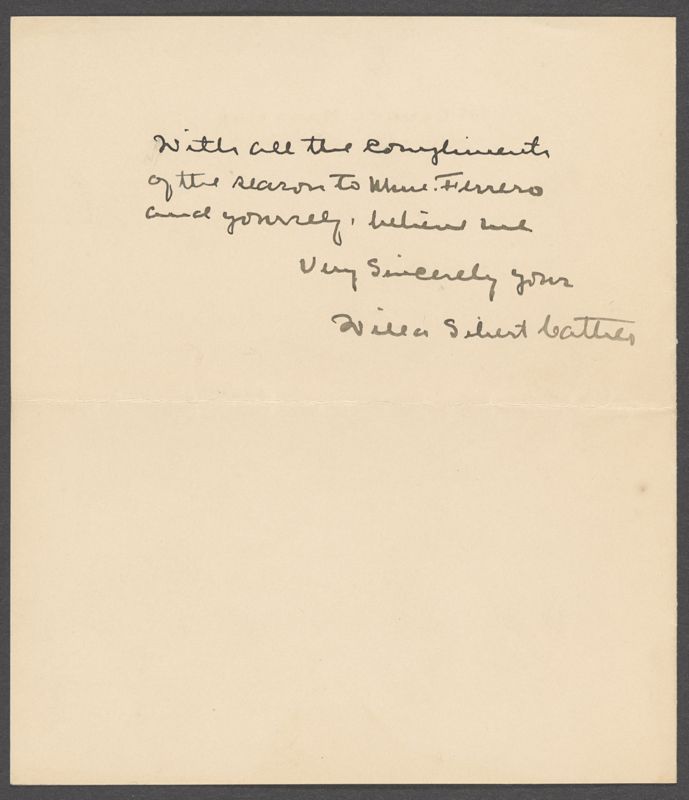 With all the compliments
of the season to Mme. Ferrero
and yourself, believe me
Very Sincerely yours
Willa Sibert Cather